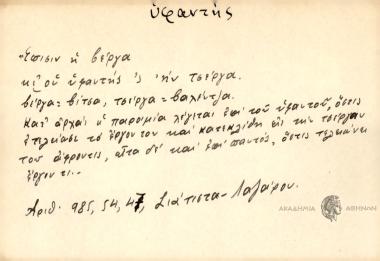 ὑφαντής
Ἔπισιν ἡ βέργα
κι̯ οὑ ὑφαντής 'ς τὴν τσέργα.
βέργα = βίτσα, τσέργα = βαλέντζα.
Κατ' ἀρχὰς ἡ παροιμία λέγεται ἐπὶ τοῦ ὑφαντοῦ, ὅστις
ἐτελείωσε τὸ ἔργον του καὶ κατεκλίθη εἰς τὴν τσέργαν
του ἄφροντις, εἶτα δὲ καὶ ἐπὶ παντός, ὅστις τελειώνει
ἔργον τι..
Ἀριθ. 985, 54, 47, Σιάτιστα - Λαζάρου.
ΑΚΑΔΗΜΙΑ ΑΘΗΝΩΝ